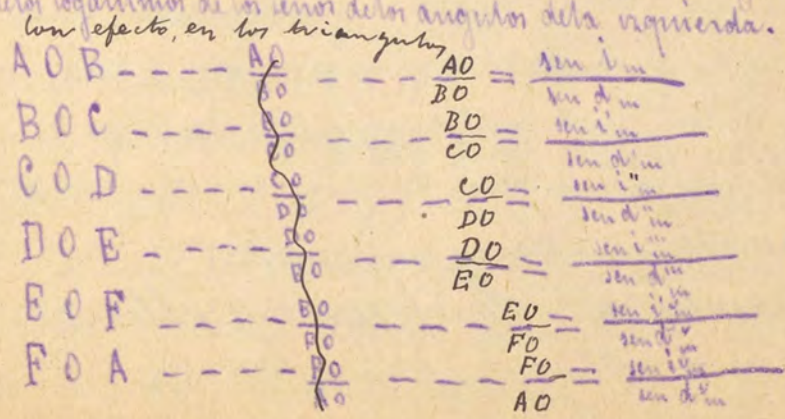 delos logaritmos de los senos delos angulos dela izquierda.
Con efecto, en los triangulos
A O B - - - - AO/BO - - - - AO/BO = sen i m/sen d m
B O C - - - - BO/CO - - - - BO/CO = sen i' m/sen d' m
C O D - - - - CO/DO - - - - CO/DO = sen i" m/sen d" m
D O E - - - - DO/EO - - - - DO/EO = sen i''' m/sen d''' m
E O F - - - - EO/FO - - - - EO/FO = sen/sen
F O A - - - - FO/AO - - - - FO/AO = sen/sen